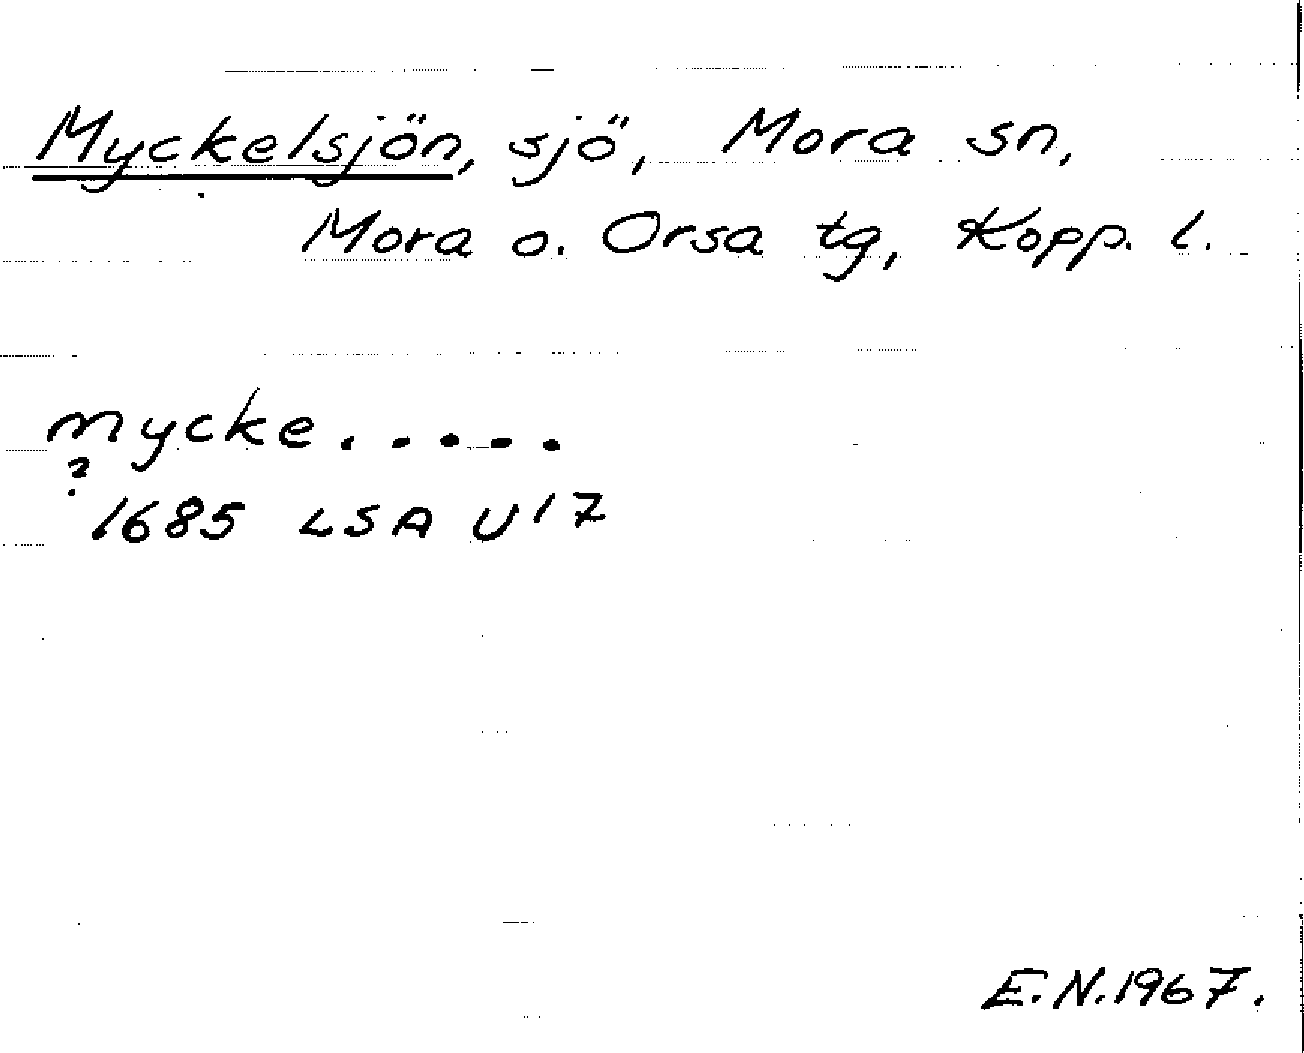 Myckelsjön, sjö, Mora sn,
Mora o. Orsa tg, Kopp. l.
mycke.....
?
1685 LSA U17
E.N.1967.